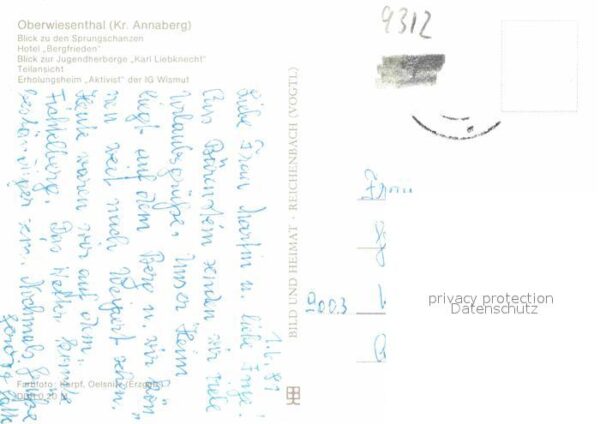 9312
Oberwiesenthal (Kr. Annaberg)
Blick zu den Sprungschanzen
Hotel „Bergfrieden"
Blick zur Jugendherberge „Karl Liebknecht"
Teilansicht
Erholungsheim „Aktivist" der IG Wismut
1.6.81
Liebe Frau Martin u. liebe Inge!
Aus Bärenstein senden wir viele
Urlaubsgrüße. Unser Heim
liegt auf dem Berg u. wir kön-
nen weit nach sehen.
Heute waren wir auf dem
Fichtelberg. Das Wetter könnte
sein. Nochmals Grüße
BILD UND HEIMAT · REICHENBACH (VOGTL)
Frau
privacy protection
Datenschutz
Farbfoto: Kerpf, Oelsnitz (Erzgeb.)